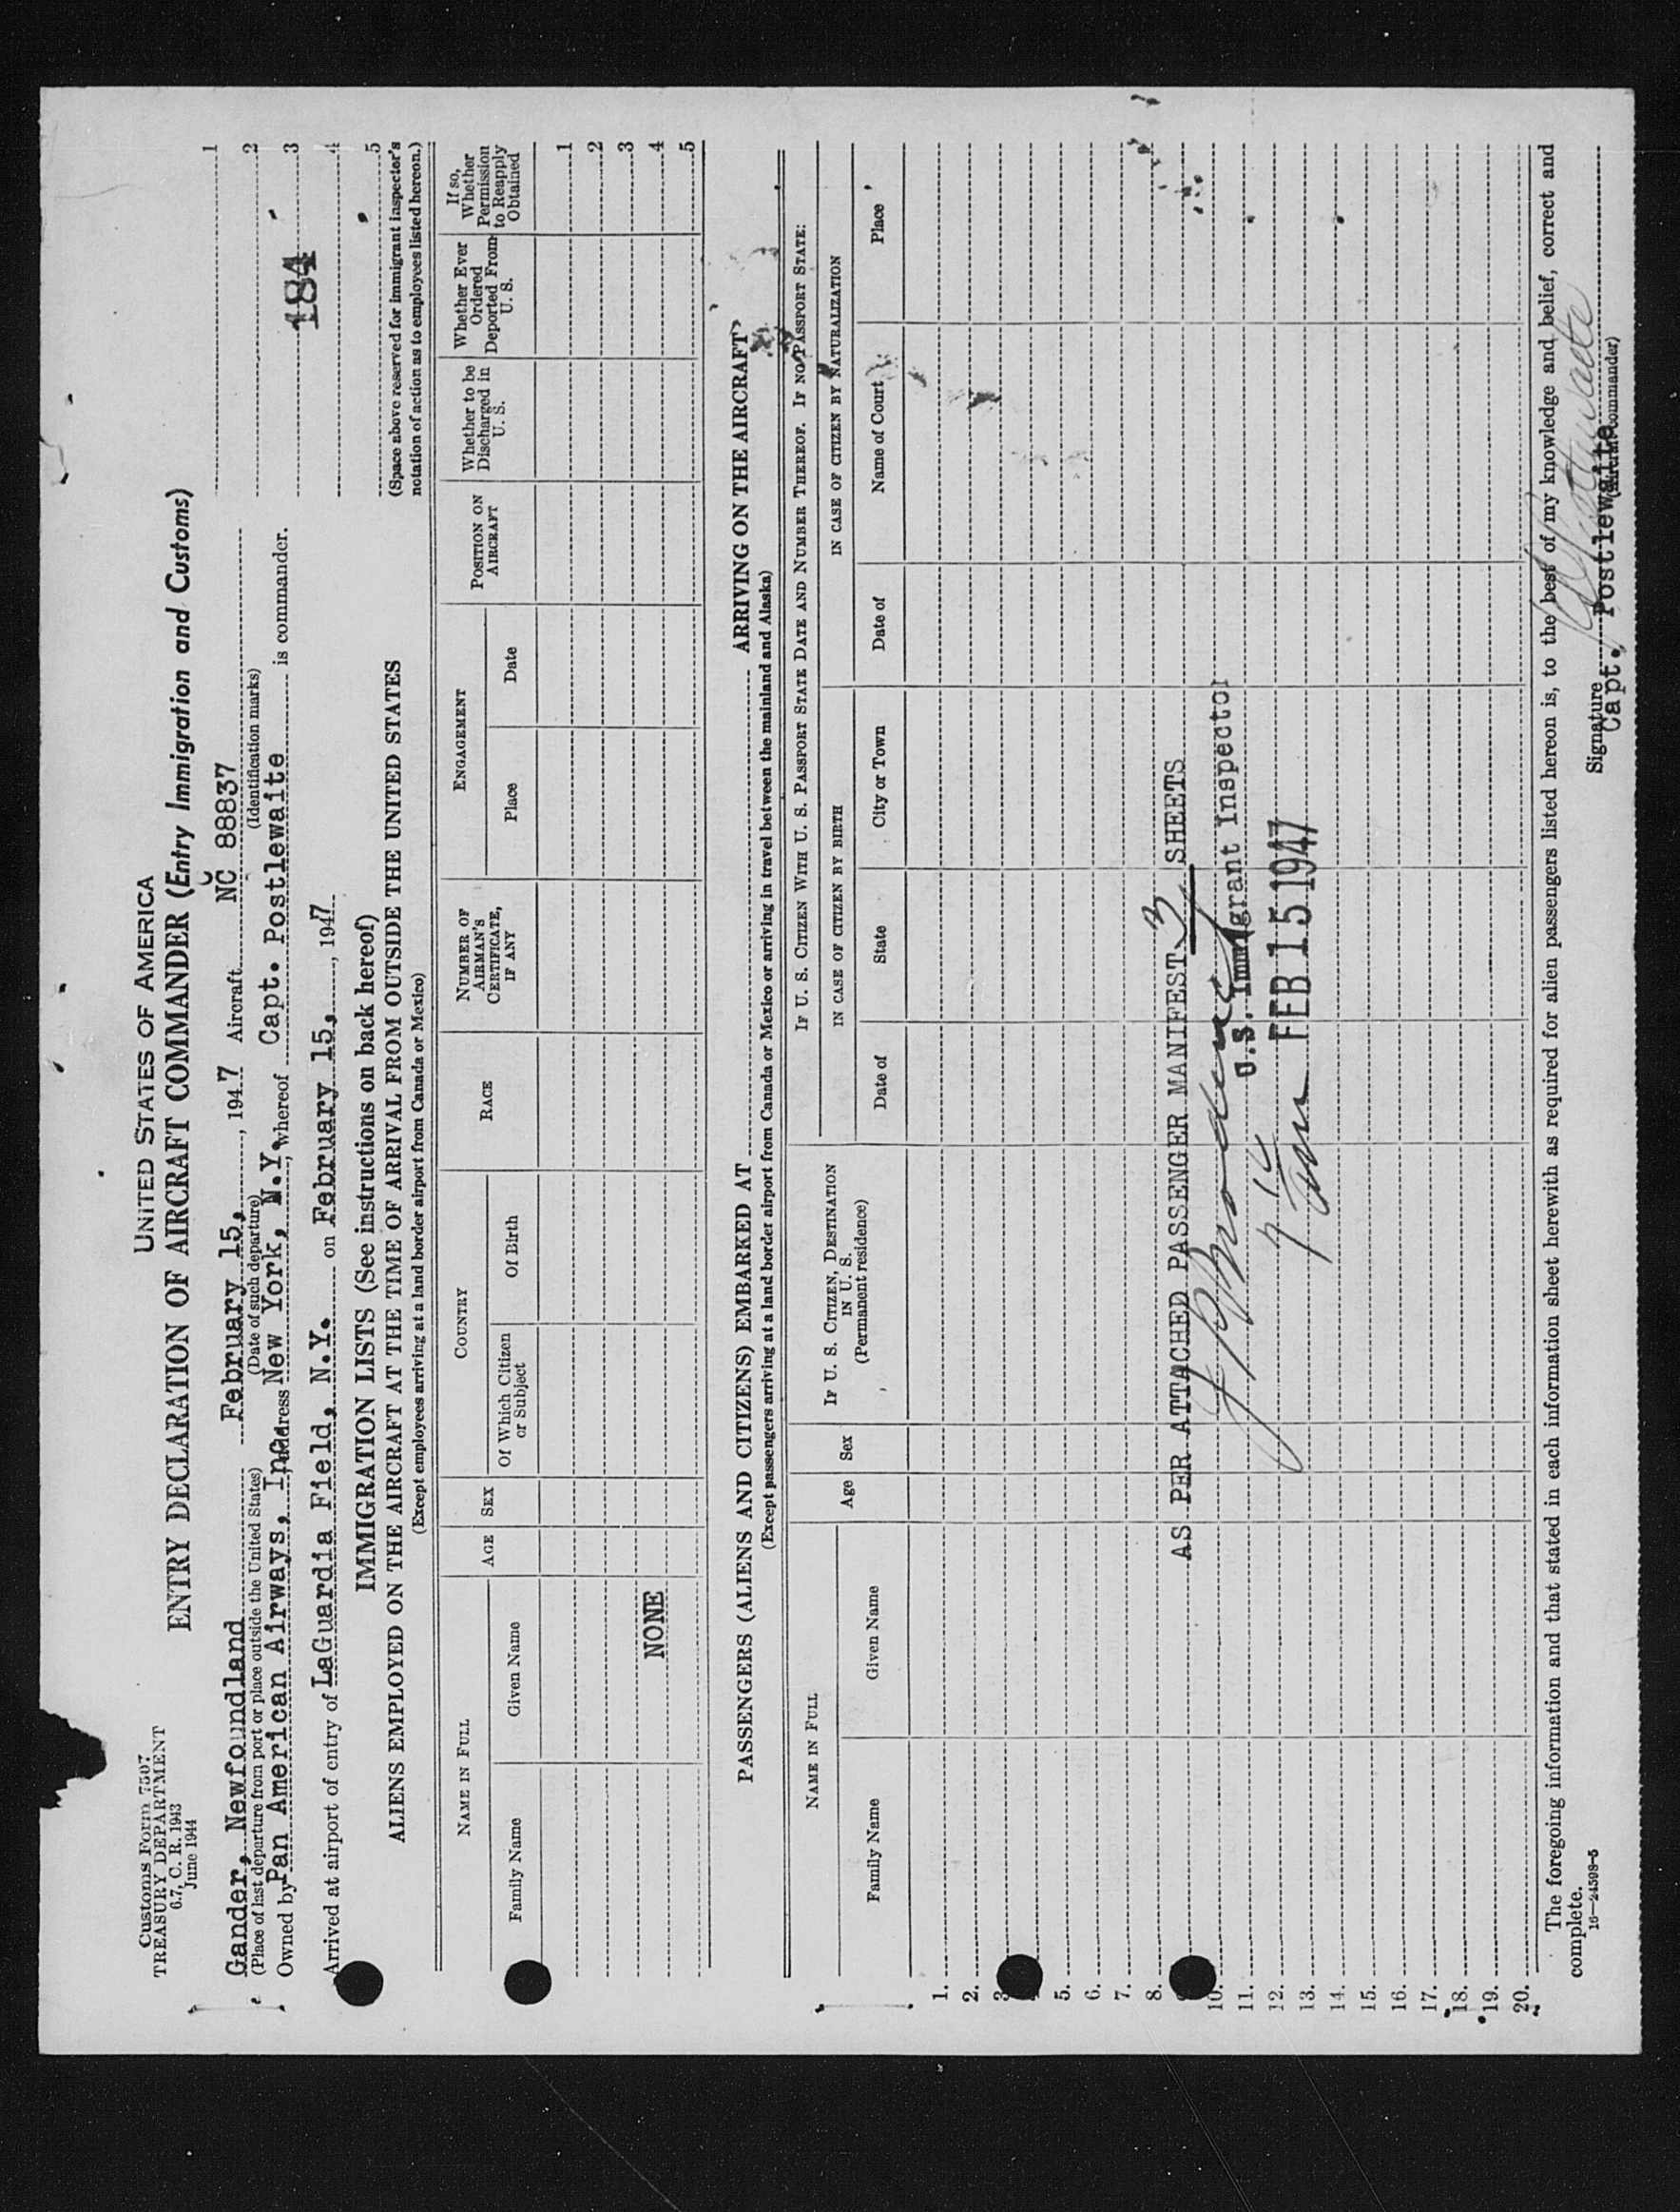 Customs Form 7507
TREASURY DEPARTMENT
6.7, C. R. 1943
June 1944
UNITED STATES OF AMERICA
ENTRY DECLARATION OF AIRCRAFT COMMANDER (Entry Immigration and Customs)
Gander, Newfoundland February 15, , 1947 Aircraft NC 88837
(Place of last departure from port or place outside the United States) (Date of such departure) (Identification marks)
Owned by Pan American Airways, Inc. Address New York, N.Y. , whereof Capt. Postlewaite is commander.
Arrived at airport of entry of LaGuardia Field, N.Y. on February 15, , 1947
1
2
3
184
4
5
(Space above reserved for immigrant inspector's
notation of action as to employees listed hereon.)
IMMIGRATION LISTS (See instructions on back hereof)
ALIENS EMPLOYED ON THE AIRCRAFT AT THE TIME OF ARRIVAL FROM OUTSIDE THE UNITED STATES
(Except employees arriving at a land border airport from Canada or Mexico)
NAME IN FULL
Family Name
Given Name
AGE
SEX
COUNTRY
Of Which Citizen
or Subject
Of Birth
RACE
NUMBER OF
AIRMAN'S
CERTIFICATE,
IF ANY
ENGAGEMENT
Place
Date
POSITION ON
AIRCRAFT
Whether to be
Discharged in
U. S.
Whether Ever
Ordered
Deported From
U. S.
If so,
Whether
Permission
to Reapply
Obtained
1
2
3
NONE 4
5
PASSENGERS (ALIENS AND CITIZENS) EMBARKED AT ARRIVING ON THE AIRCRAFT
(Except passengers arriving at a land border airport from Canada or Mexico or arriving in travel between the mainland and Alaska)
NAME IN FULL
Family Name
Given Name
Age
Sex
IF U. S. CITIZEN, DESTINATION
IN U. S.
(Permanent residence)
IF U. S. CITIZEN WITH U. S. PASSPORT STATE DATE AND NUMBER THEREOF. IF NO PASSPORT STATE:
IN CASE OF CITIZEN BY BIRTH
Date of
State
City or Town
IN CASE OF CITIZEN BY NATURALIZATION
Date of
Name of Court
Place
1.
2.
3
5.
6.
7.
8.
AS PER ATTACHED PASSENGER MANIFEST 3 SHEETS
10.
11.
U.S. Immigrant Inspector
12.
13.
FEB 15 1947
14.
15.
16.
17.
18.
19.
20.
The foregoing information and that stated in each information sheet herewith as required for alien passengers listed hereon is, to the best of my knowledge and belief, correct and
complete.
16—24598-5
Signature
Capt. Postlewaite
(Aircraft commander)